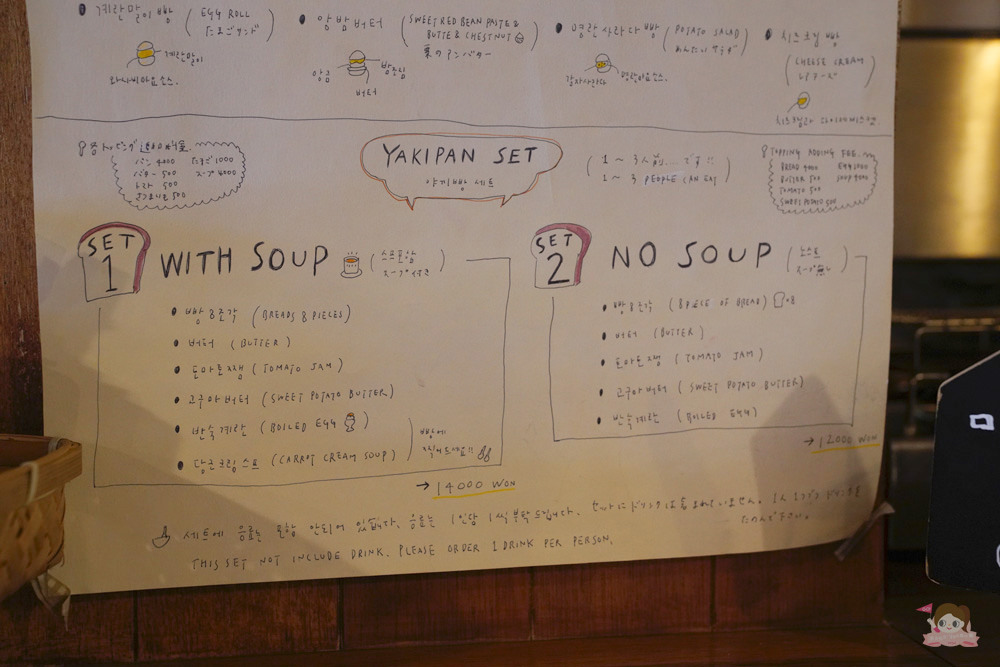 계란말이 빵 (EGG ROLL
たまごサンド)
계란말이
와사비마요소스.
앙밤버터 (SWEET RED BEAN PASTE &
BUTTE & CHESTNUT
栗のアンバター
앙금
밤조림
버터
명란사라다빵 (POTATO SALAD
めんたいサラダ)
감자사라다
명란마요소스.
치즈크림빵
(CHEESE CREAM
パン 4000
バター 500
トマト 500
たまご 1000
スープ 4000
YAKIPAN SET
야끼빵 세트
1 ~ 3 PEOPLE CAN EAT
TOPPING ADDING FEE.
BREAD 4000
BUTTER 500
TOMATO 500
SWEET POTATO 500
EGG 1000
SOUP 4000
SET
1
WITH SOUP
(스프포함
スープ付き
• 빵 8조각 (BREADS 8 PIECES)
• 버터 (BUTTER)
• 토마토쨈 (TOMATO JAM)
• 고구마버터 (SWEET POTATO BUTTER)
• 반숙계란 (BOILED EGG
• 당근크림스프 (CARROT CREAM SOUP)
빵에
찍어드세요!!
→ 14000 WON
SET
2
NO SOUP
(노스프
スープ無し
• 빵8조각 (8PIESE OF BREAD)
• 버터 (BUTTER)
• 토마토쨈 (TOMATO JAM)
• 고구마버터 (SWEET POTATO BUTTER)
• 반숙계란 (BOILED EGG)
→ 12000 WON
세트에 음료는 포함 안되어 있습니다. 음료는 1인당 1씩부탁드립니다.
THIS SET NOT INCLUDE DRINK. PLEASE ORDER 1 DRINK PER PERSON.